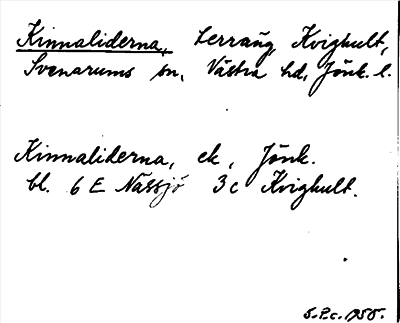 Kinnaliderna, terräng, Kvighult,
Svenarums sn, Västra hd, Jönk. l.
Kinnaliderna, ek, Jönk.
bl. 6 E Nässjö 3c Kvighult.
S.P.c. 1958.